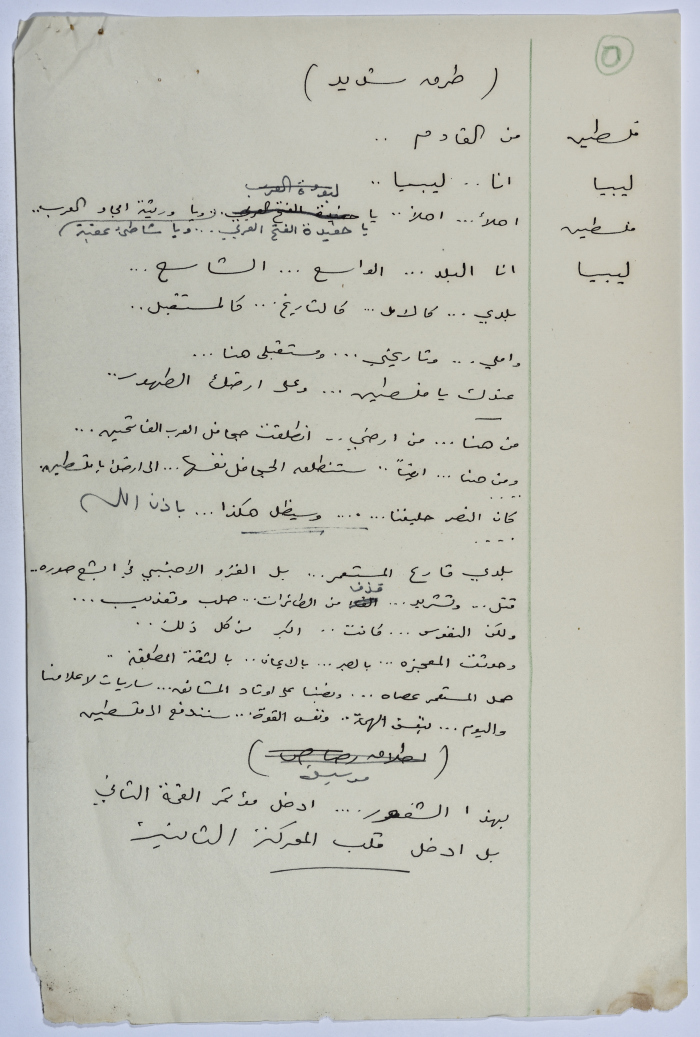 ٥
( طرق شديد )
فلسطين من القادم ..
ليبيا انا .. ليبيا ..
لبوة العرب
فلسطين اهلاً ... اهلاً .. يا حفيدة الفتح العربي .. ويا وريثة امجاد العرب ..
يا حفيدة الفتح العربي ... ويا شاطئ عقبة
ليبيا انا البلد ... الواسع ... الشاسع ...
بلدي ... كالامل ... كالتاريخ ... كالمستقبل ..
واملي ... وتاريخي ... ومستقبلي هنا ...
عندك يا فلسطين ... وعلى ارضك الطهور ..
من هنا ... من ارضي .. انطلقت جحافل العرب الفاتحين ...
ومن هنا ... ايضاً .. ستنطلق الجحافل نفسها ... الى ارضك يا فلسطين ..
كان النصر حليفنا ... وسيظل هكذا ... باذن الله
بلدي قارع المستعمر ... بل الغزو الاجنبي في ابشع صوره ..
قتل .. وتشريد ... قذف من الطائرات .. صلب وتعذيب ...
ولكن النفوس ... كانت .. اكبر من كل ذلك ..
وحدثت المعجزه ... بالصبر ... بالايمان .. بالثقة المطلقة ..
حمل المستعمر عصاه ... ونصبنا على اوتاد المشانق ... ساريات لاعلامنا
واليوم ... بنفس الهمة .. ونفس القوة ... سنندفع الى فلسطين
( اطلاق رصاص )
موسيقى
بهذا الشعور .... ادخل مؤتمر القمة الثاني
بل ادخل قلب المعركة الثانية